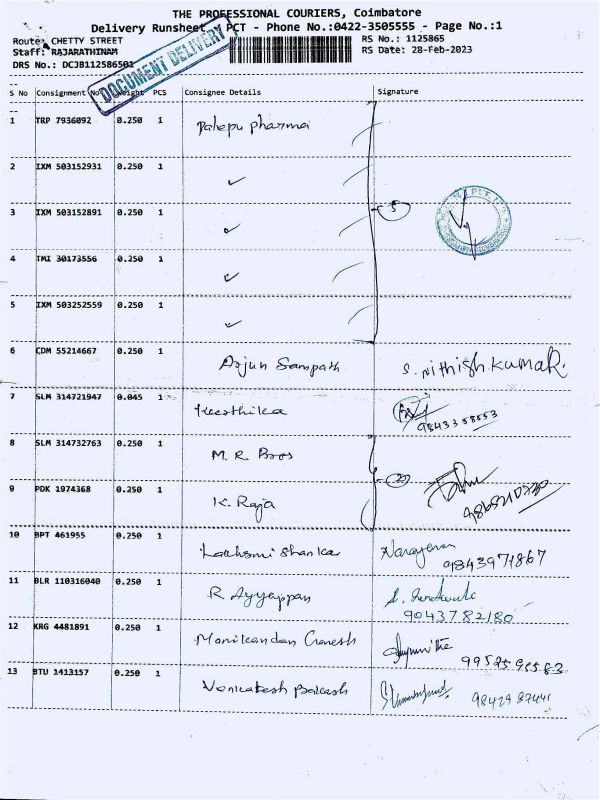 THE PROFESSIONAL COURIERS, Coimbatore
Delivery Runsheet / PCT - Phone No.:0422-3505555 - Page No.:1
Route: CHETTY STREET
RS No.: 1125865
Staff: RAJARATHINAM
RS Date: 28-Feb-2023
DRS No.: DCJB112586501
DOCUMENT DELIVERY
S No Consignment No Weight PCS Consignee Details Signature
1 TRP 7936092 0.250 1 Palepu pharma
2 IXM 503152931 0.250 1 ✓
3 IXM 503152891 0.250 1 ✓ 5
4 TMI 30173556 0.250 1 ✓
5 IXM 503252559 0.250 1 ✓
6 CDM 55214667 0.250 1 Arjun Sampath S. Nithish kumaR.
7 SLM 314721947 0.045 1 Keerthika 9843358553
8 SLM 314732763 0.250 1 M. R. Bros
9 PDK 1974368 0.250 1 K. Raja
10 BPT 461955 0.250 1 Lakhsmi Shankar Narayanan 9843971867
11 BLR 110316040 0.250 1 R Ayyappan 9043782180
12 KRG 4481891 0.250 1 Manikandan Ganesh
13 BTU 1413157 0.250 1 Venkatesh Prakash 9842987441